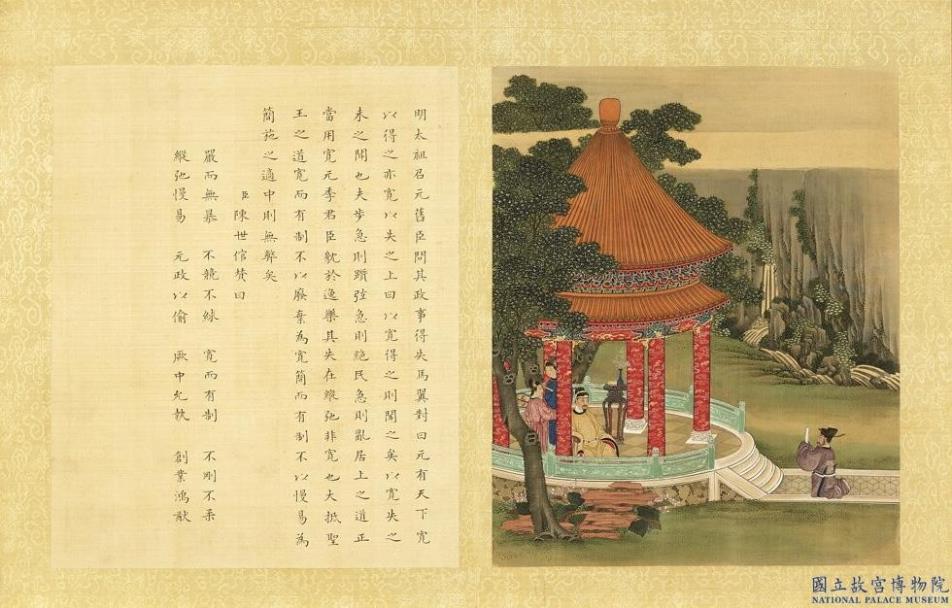 明太祖召元舊臣問其政事得失馬翼對曰元有天下寬
以得之亦寬以失之上曰以寬得之則聞之矣以寬失之
未之聞也夫步急則躓弦急則絶民急則亂居上之道正
當用寬元季君臣躭於逸樂其失在縱弛非寬也大抵聖
王之道寬而有制不以廢棄為寬簡而有制不以慢易為
簡施之適中則無弊矣
臣陳世倌贊曰
嚴而無暴 不競不絿 寬而有制 不剛不柔
縱弛慢易 元政以偷 厥中允執 創業鴻猷
國立故宮博物院
NATIONAL PALACE MUSEUM